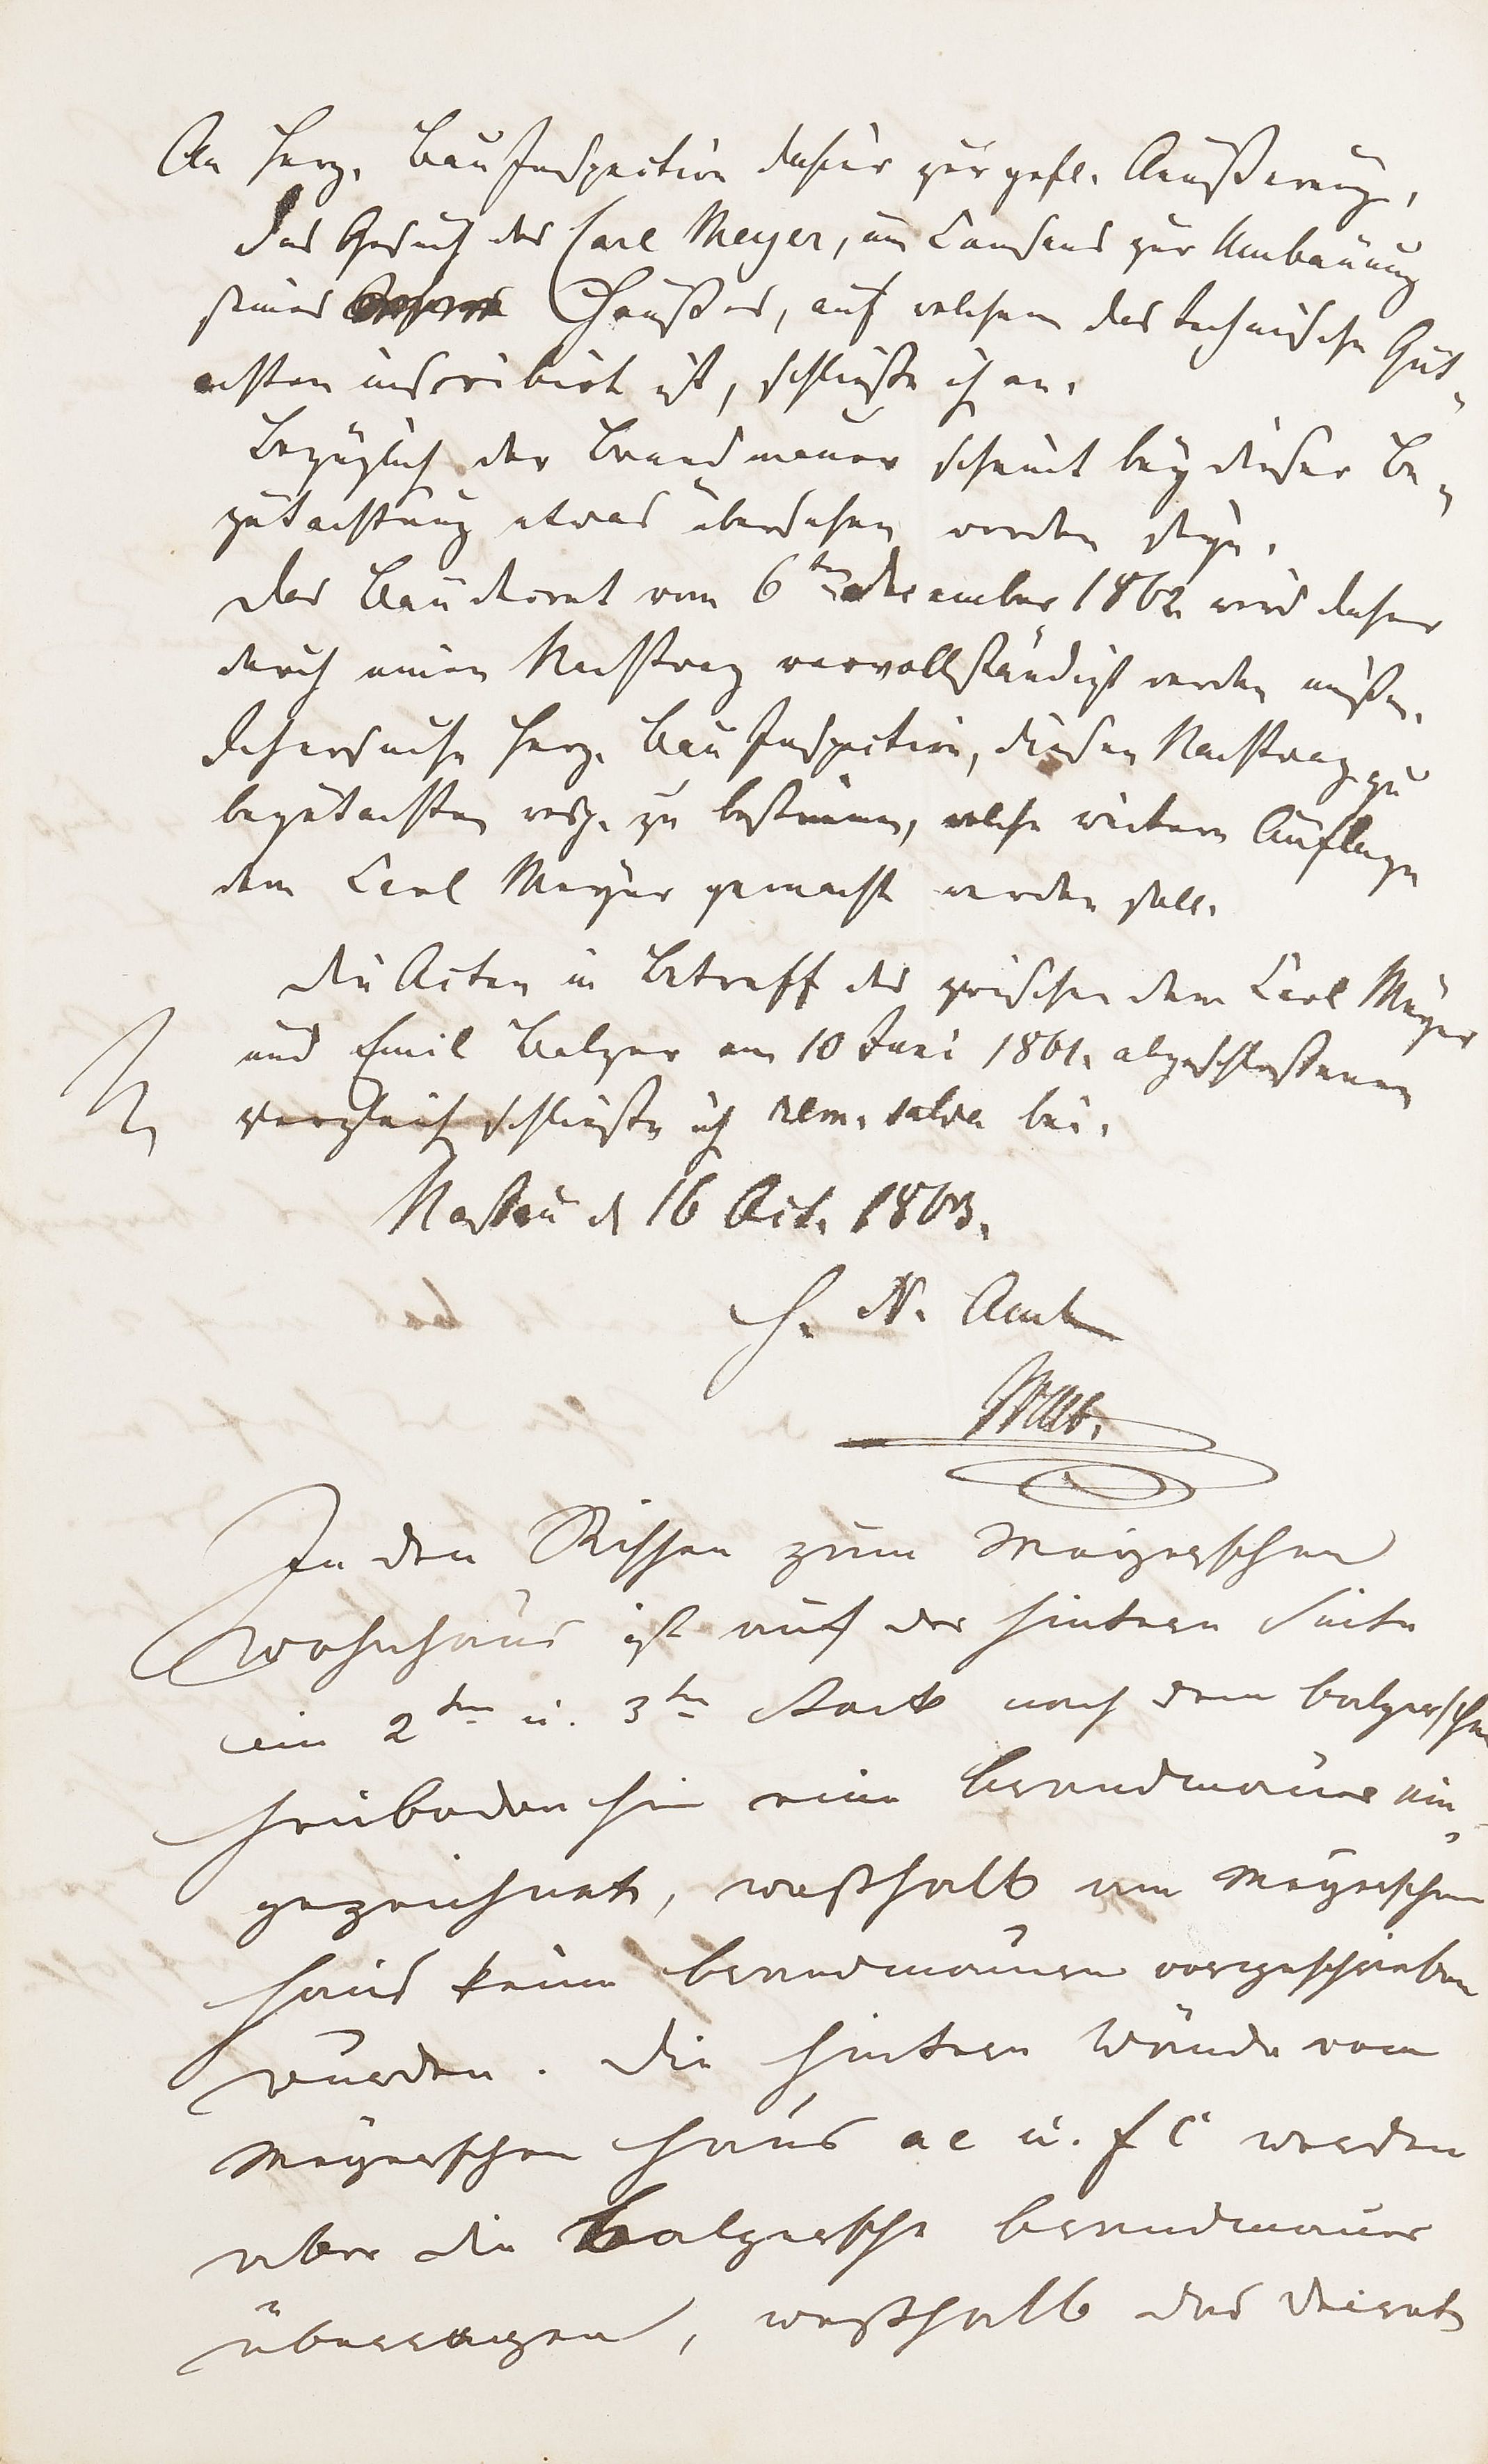 An Herz. Bau Inspection dahier zur gefl. Aeußerung,
Das Gesuch des Carl Meyer, um Consens zur Umbauung
seines Hauses, auf welchem das technische Gut-
achten inscribirt ist, schließe ich an.
Bezüglich der Brandmauer scheint bey dieser Be-
gutachtung etwas übersehen worden seyn.
Das Baudecret vom 6ten December 1862 wird daher
durch einen Nachtrag vervollständigt werden müßen.
Ich ersuche Herz. Bau Inspection, diesen Nachtrag zu
begutachten resp. zu bestimmen, welche weitere Auflage
dem Carl Meyer gemacht werden soll.
Die Acten in Betreff des zwischen dem Carl Meyer
und Emil Balzer am 10 Juni 1861. abgeschlossenen
Vergleich schließe ich rem. salva bei.
Nassau d 16 Oct. 1863.
H. N. Amt
In den Rissen zum Meyerschen
Wohnhaus ist auf der hintern Seite
im 2ten u. 3ten Stock nach dem Balzerschen
Heuboden hin eine Brandmauer ein-
gezeichnet, weßhalb am Meyerschen
Haus keine Brandmauern vorgeschrieben
wurden. Die hintern Wände vom
Meyerschen Haus ae u. fc werden
aber die Balzersche Brandmauer
überragen, weßhalb das Decret